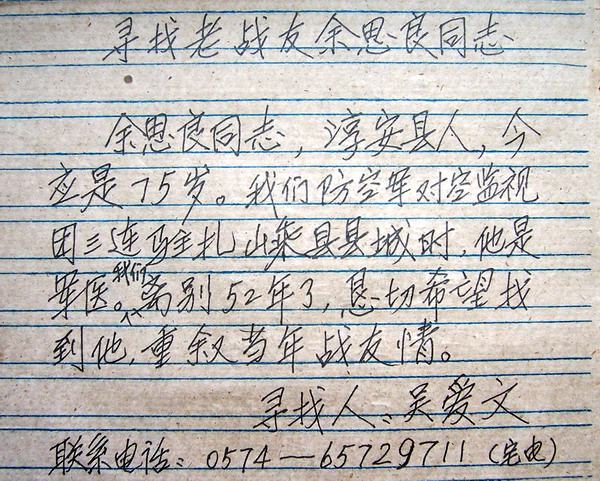 寻找老战友余思良同志
余思良同志，淳安县人，今
应是75岁。我们防空军对空监视
团三连驻扎嵊县县城时，他是
军医。我们离别52年了，恳切希望找
到他，重叙当年战友情。
寻找人：吴爱文
联系电话：0574—65729711（宅电）